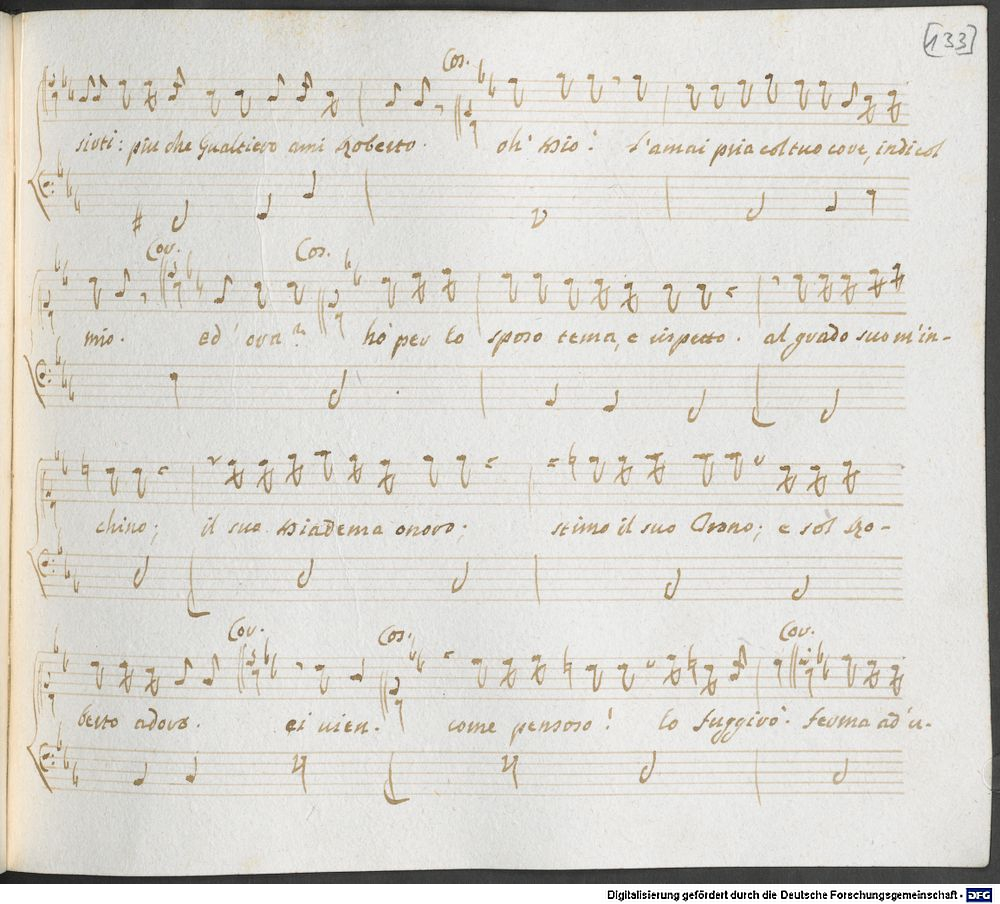 [133]
Cos.
sisti: piu che Gualtiero ami Roberto. oh' Dio! l'amai pria col tuo core, indi col
Cor. Cos.
mio. ed' ora? hò per lo sposo tema, e rispetto. al grado suo m'in-
chino; il suo Diadema onoro; stimo il suo Trono; e sol Ro-
Cor. Cos. Cor.
berto adoro. ei vien. come pensoso! lo fuggirò. ferma ad'u-
Digitalisierung gefördert durch die Deutsche Forschungsgemeinschaft - DFG